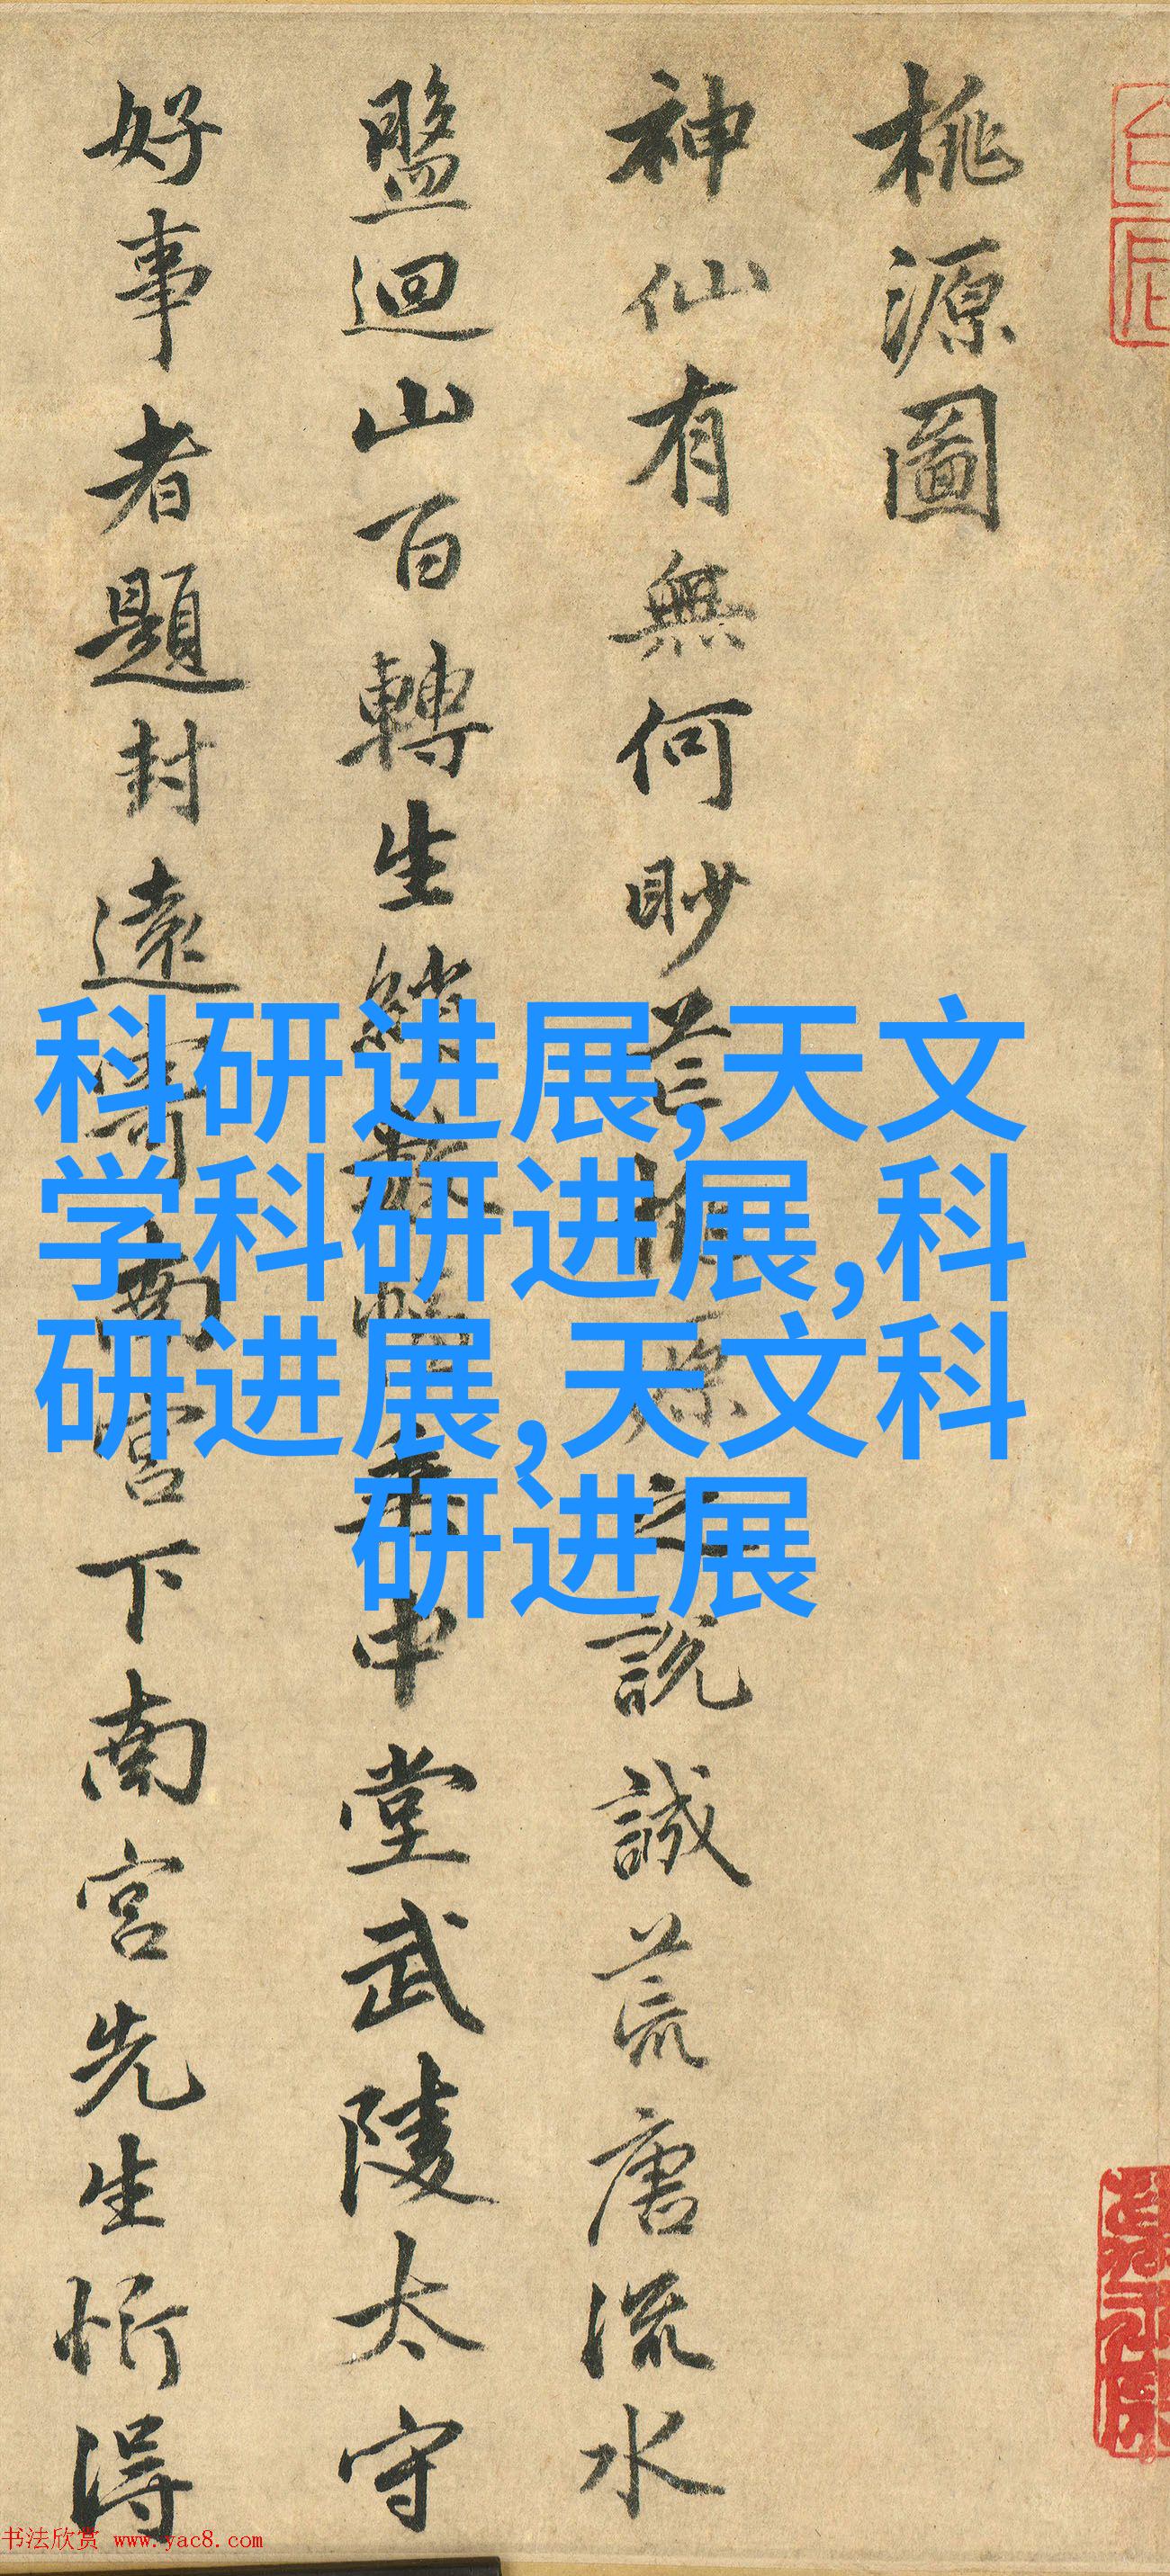 桃源圖
神仙有無何眇芒桃源之說誠荒唐流水
盤迴山百轉生綃數幅垂中堂武陵太守
好事者題封遠寄南宮下南宮先生忻得
科研进展,天文
学科研进展,科
研进展,天文科
研进展
书法欣赏 www.yac8.com